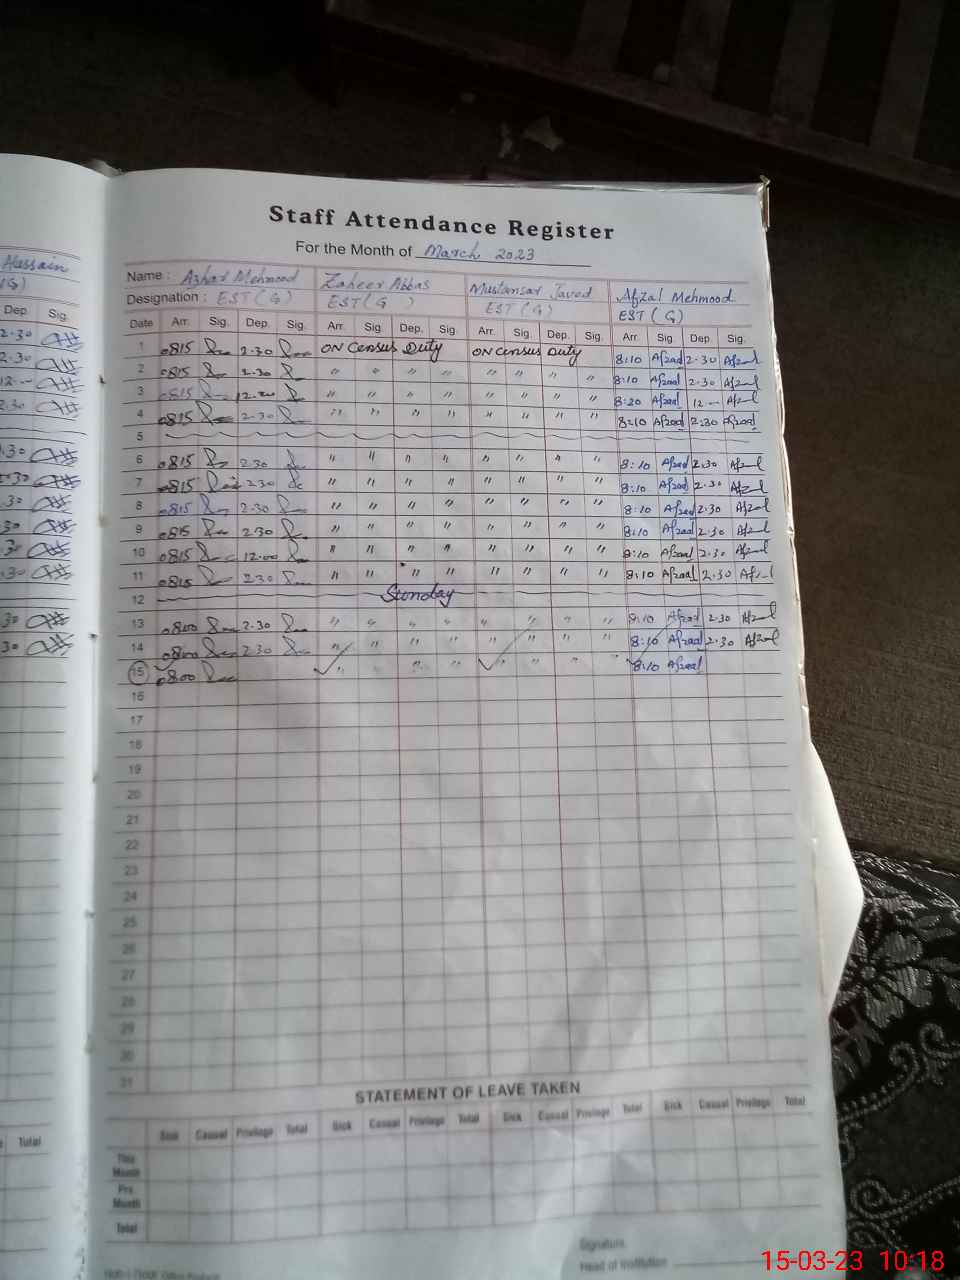 Staff Attendance Register
For the Month of March 2023
Hussain
Name : Azhar Mehmood Zaheer Abbas Mustansar Javed Afzal Mehmood
Designation : EST (G) EST (G) EST (G) EST (G)
Dep. Sig.
Date Arr. Sig. Dep. Sig. Arr. Sig. Dep. Sig. Arr. Sig. Dep. Sig. Arr. Sig. Dep. Sig.
1 0815 2.30 ON Census Duty ON Census Duty 8:10 Afzaal 2.30 Afzaal
2 0815 2.30 " " " " " " " " 8:10 Afzaal 2.30 Afzaal
3 0815 " " " " " " " " 8:20 Afzaal 12 -- Afzaal
4 0815 2.30 " " " " " " " " 8:10 Afzaal 2.30 Afzaal
5
6 0815 2.30 " " " " " " " " 8:10 Afzaal 2.30 Afzaal
7 0815 2.30 " " " " " " " " 8:10 Afzaal 2.30 Afzaal
8 0815 2.30 " " " " " " " " 8:10 Afzaal 2.30 Afzaal
9 0815 2.30 " " " " " " " " 8:10 Afzaal 2.30 Afzaal
10 0815 12.00 " " " " " " " " 8:10 Afzaal 2.30 Afzaal
11 0815 2.30 " " " " " " " " 8:10 Afzaal 2.30 Afzaal
12 Sunday
13 0800 2.30 " " " " " " " " 8:10 Afzaal 2.30 Afzaal
14 0800 2.30 " " " " " " " " 8:10 Afzaal 2.30 Afzaal
15 0800 " " " " " " " " 8:10 Afzaal
16
17
18
19
20
21
22
23
24
25
26
27
28
29
30
31
STATEMENT OF LEAVE TAKEN
Total
Sick Casual Privilege Total Sick Casual Privilege Total Sick Casual Privilege Total Sick Casual Privilege Total
This Month
Pre Month
Total
Signature
Head of Institution
15-03-23 10:18